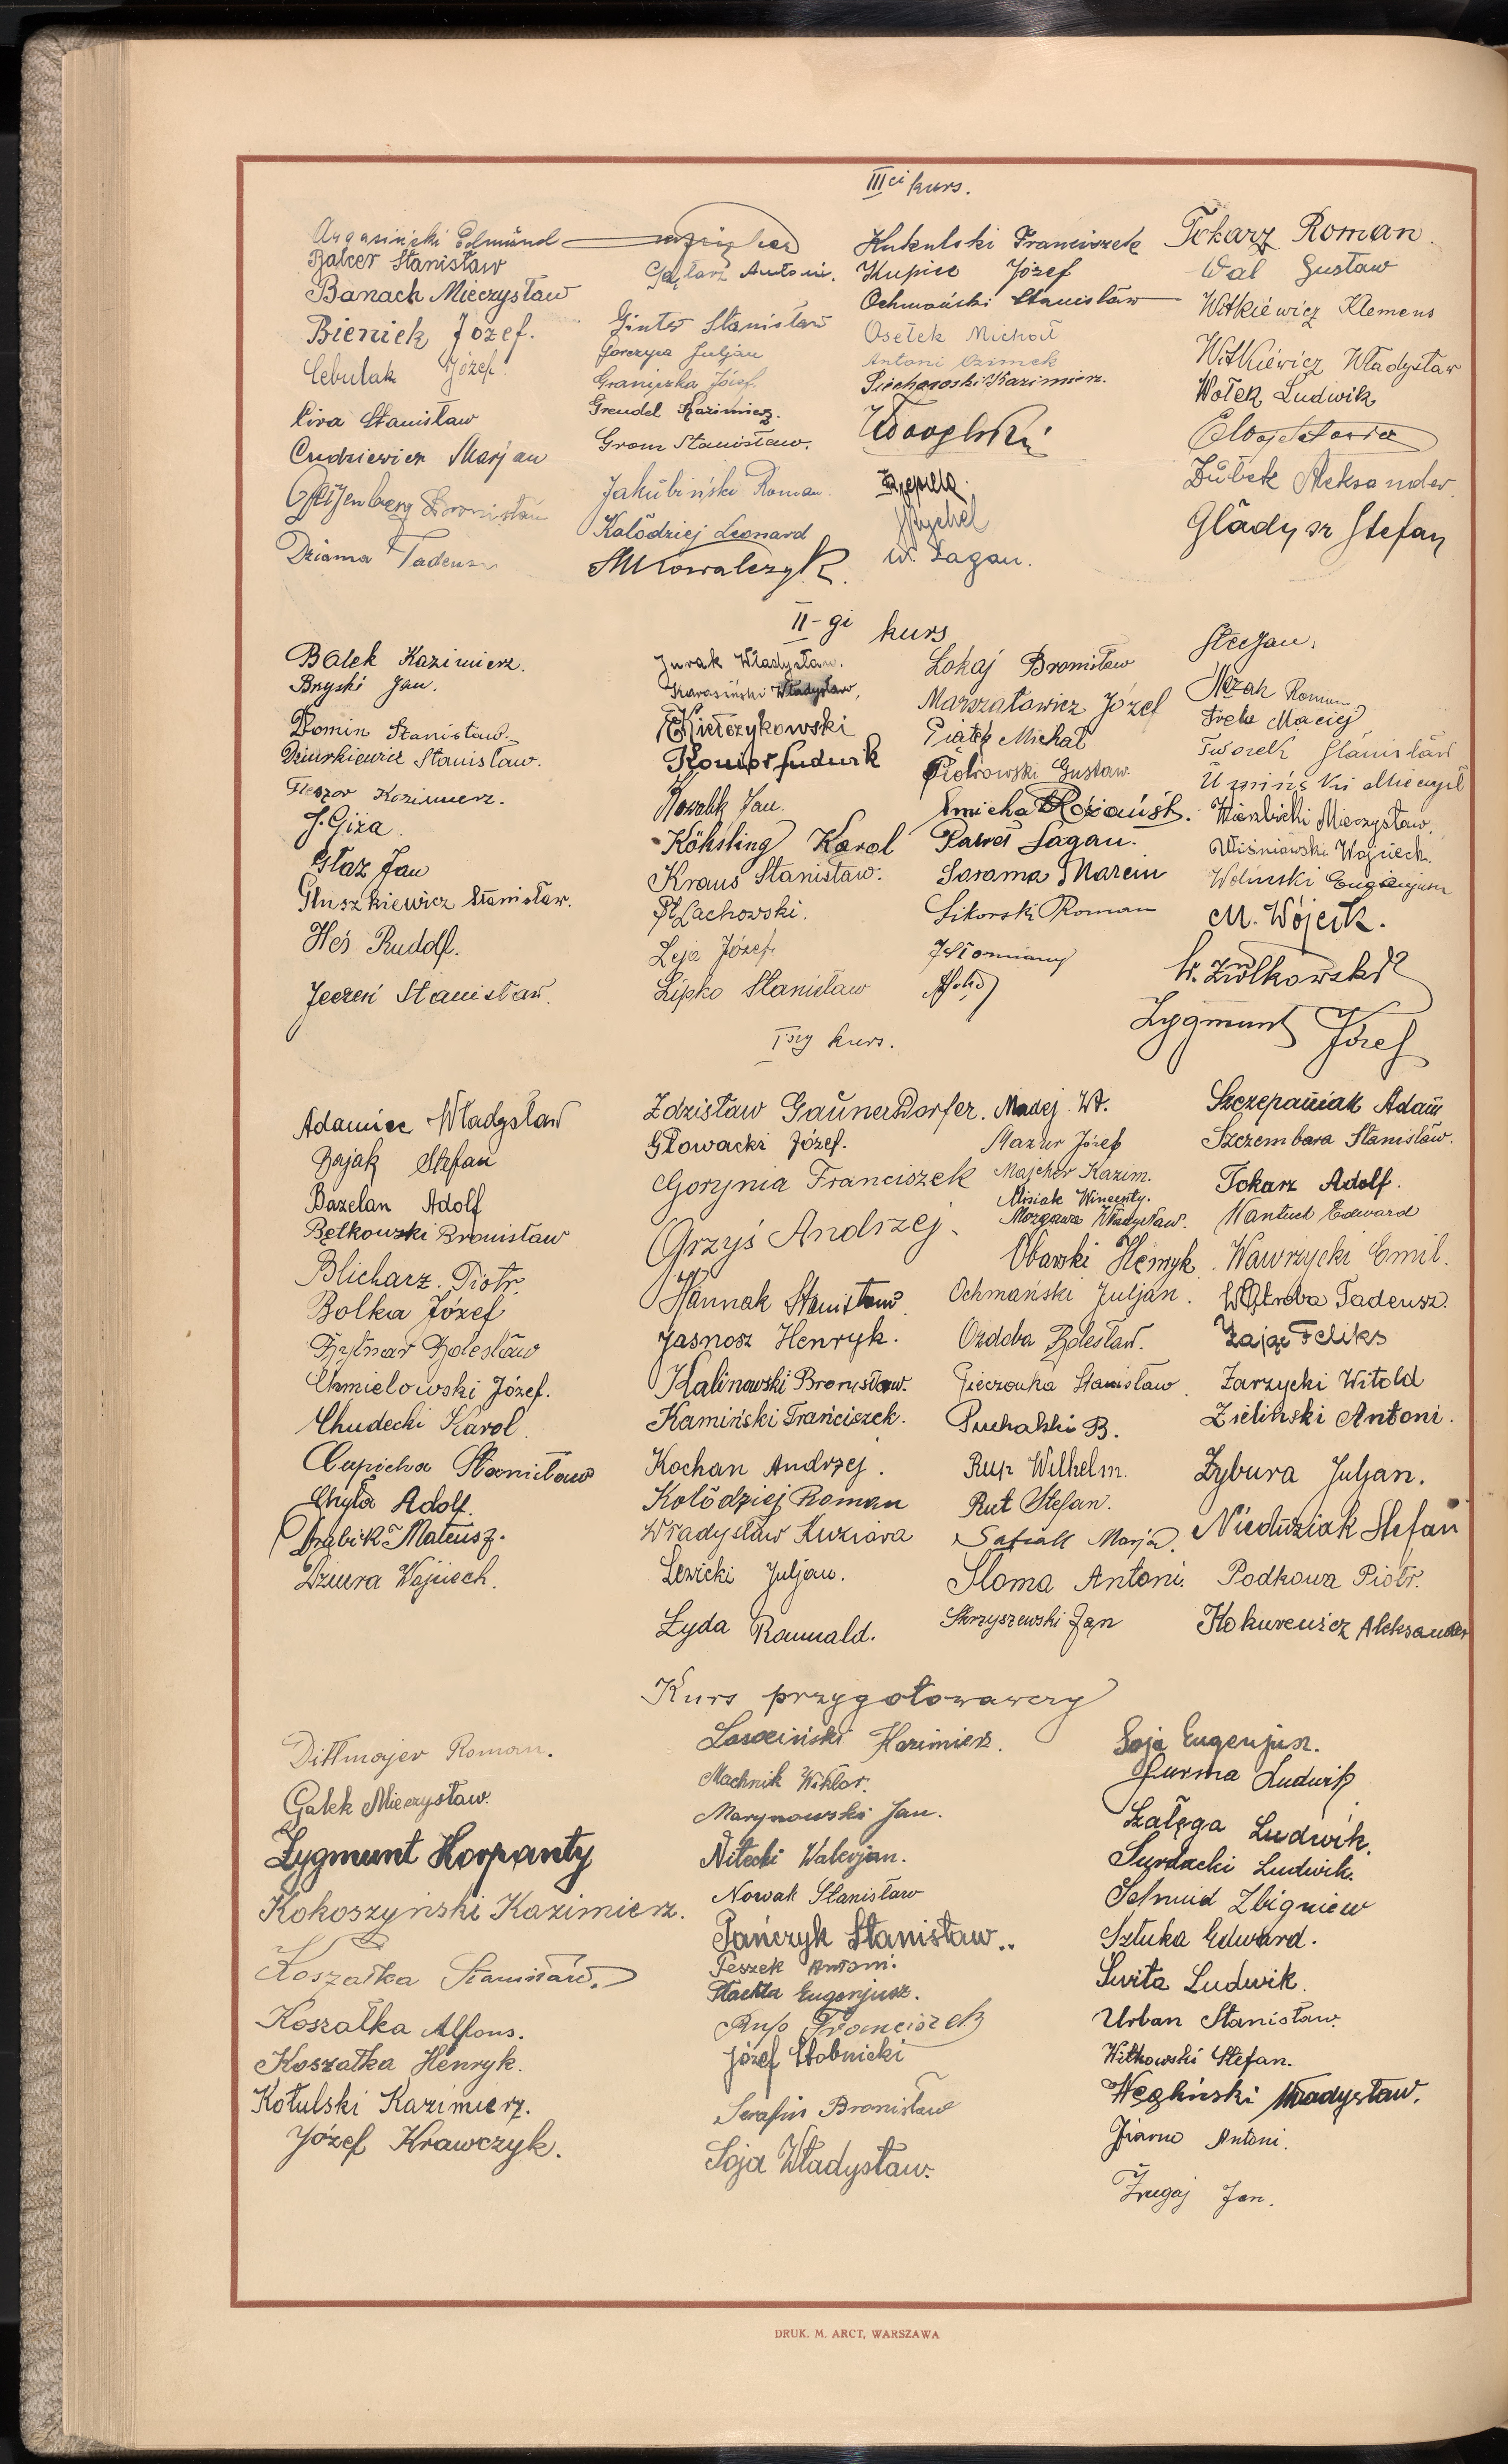 IIIci kurs.
Argasiński Edmund
Balcer Stanisław
Banach Mieczysław
Bieniek Józef.
Cebulak Józef.
Cira Stanisław
Cudziewicz Marjan
Bronisław
Dziama Tadeusz
Antoni.
Stanisław
Gorczyca Juljan
Józef.
Grendel Kazimierz.
Grom Stanisław.
Jakubiński Roman.
Kołodziej Leonard
Kowalczyk
Kukulski Franciszek
Kupiec Józef
Ochmański Stanisław
Osełek Michał
Antoni Ozimek
Kazimierz.
Rzepiela.
W. Sagan.
Tokarz Roman
Wal Gustaw
Witkiewicz Klemens
Witkiewicz Władysław
Wołek Ludwik
Dubek Aleksander.
Gładysz Stefan
II-gi kurs
Bałek Kazimierz.
Bryski Jan.
Domin Stanisław.
Dziurkiewicz Stanisław.
Fleszar Kazimierz.
J. Giża.
Głaz Jan
Głuszkiewicz Stanisław.
Heś Rudolf.
Jeczeń Stanisław.
Jurak Władysław.
Karasiński Władysław,
Kiełczykowski
Konior Ludwik
Jan.
Köhsling Karol
Kraus Stanisław.
Lachowski.
Leja Józef.
Lipko Stanisław
Łokaj Bronisław
Marszałowicz Józef
Piątek Michał
Piotrowski Gustaw.
Paweł Sagan.
Sarama Marcin
Sikorski Roman
J. Słomiany
Stefan.
Roman
Maciej
Tworek Stanisław
Uzmiński
Wierzbicki Mieczysław.
Wiśniowski Wojciech.
Woliński Eugenjusz
M. Wójcik.
W. Ziółkowski
Zygmunt Józef
Iszy kurs.
Adamiec Władysław
Bajak Stefan
Bazelan Adolf
Bętkowski Bronisław
Blicharz Piotr.
Bolka Józef
Bytnar Bolesław
Chmielowski Józef.
Chudecki Karol
Cupicha Stanisław
Chyła Adolf.
Drabik Mateusz.
Dziura Wojciech.
Zdzisław Gaunersdorfer.
Głowacki Józef.
Gorynia Franciszek
Grzyś Andrzej.
Hannak Stanisław.
Jasnosz Henryk.
Kalinowski Bronisław.
Kamiński Franciszek.
Kochan Andrzej.
Kołodziej Roman
Władysław Kuziora
Lewicki Juljan.
Łyda Romuald.
Madej Wł.
Mazur Józef
Majcher Kazim.
Misiak Wincenty.
Mozgawa Władysław.
Obarski Henryk.
Ochmański Juljan.
Ozdoba Bolesław.
Pieczonka Stanisław.
Puchalski B.
Rup Wilhelm.
Rut Stefan.
Słoma Antoni.
Skrzyszewski Jan
Szczepaniak Adam
Szczembara Stanisław.
Tokarz Adolf.
Wantuch Edward
Wawrzycki Emil.
Wątroba Tadeusz.
Zając Feliks
Zarzycki Witold
Zieliński Antoni.
Zybura Juljan.
Niedużiak Stefan
Podkowa Piotr.
Kokurewicz Aleksander
Kurs przygotowawczy
Dittmajer Roman.
Gałek Mieczysław.
Zygmunt Korpanty
Kokoszyński Kazimierz.
Koszałka Stanisław.
Koszałka Alfons.
Koszałka Henryk.
Kotulski Kazimierz.
Józef Krawczyk.
Lasociński Kazimierz.
Machnik Wiktor.
Marynowski Jan.
Nitecki Walerjan.
Nowak Stanisław
Pańczyk Stanisław..
Peszek Antoni.
Płachta Eugenjusz.
Rup Franciszek
Józef Słobnicki
Serafin Bronisław
Soja Władysław.
Soja Eugenjusz.
Surma Ludwik
Szałęga Ludwik.
Surdacki Ludwik.
Schmid Zbigniew
Sztuka Edward.
Świta Ludwik.
Urban Stanisław.
Witkowski Stefan.
Węgliński Władysław.
Ziarno Antoni.
Żugaj Jan.
DRUK. M. ARCT, WARSZAWA